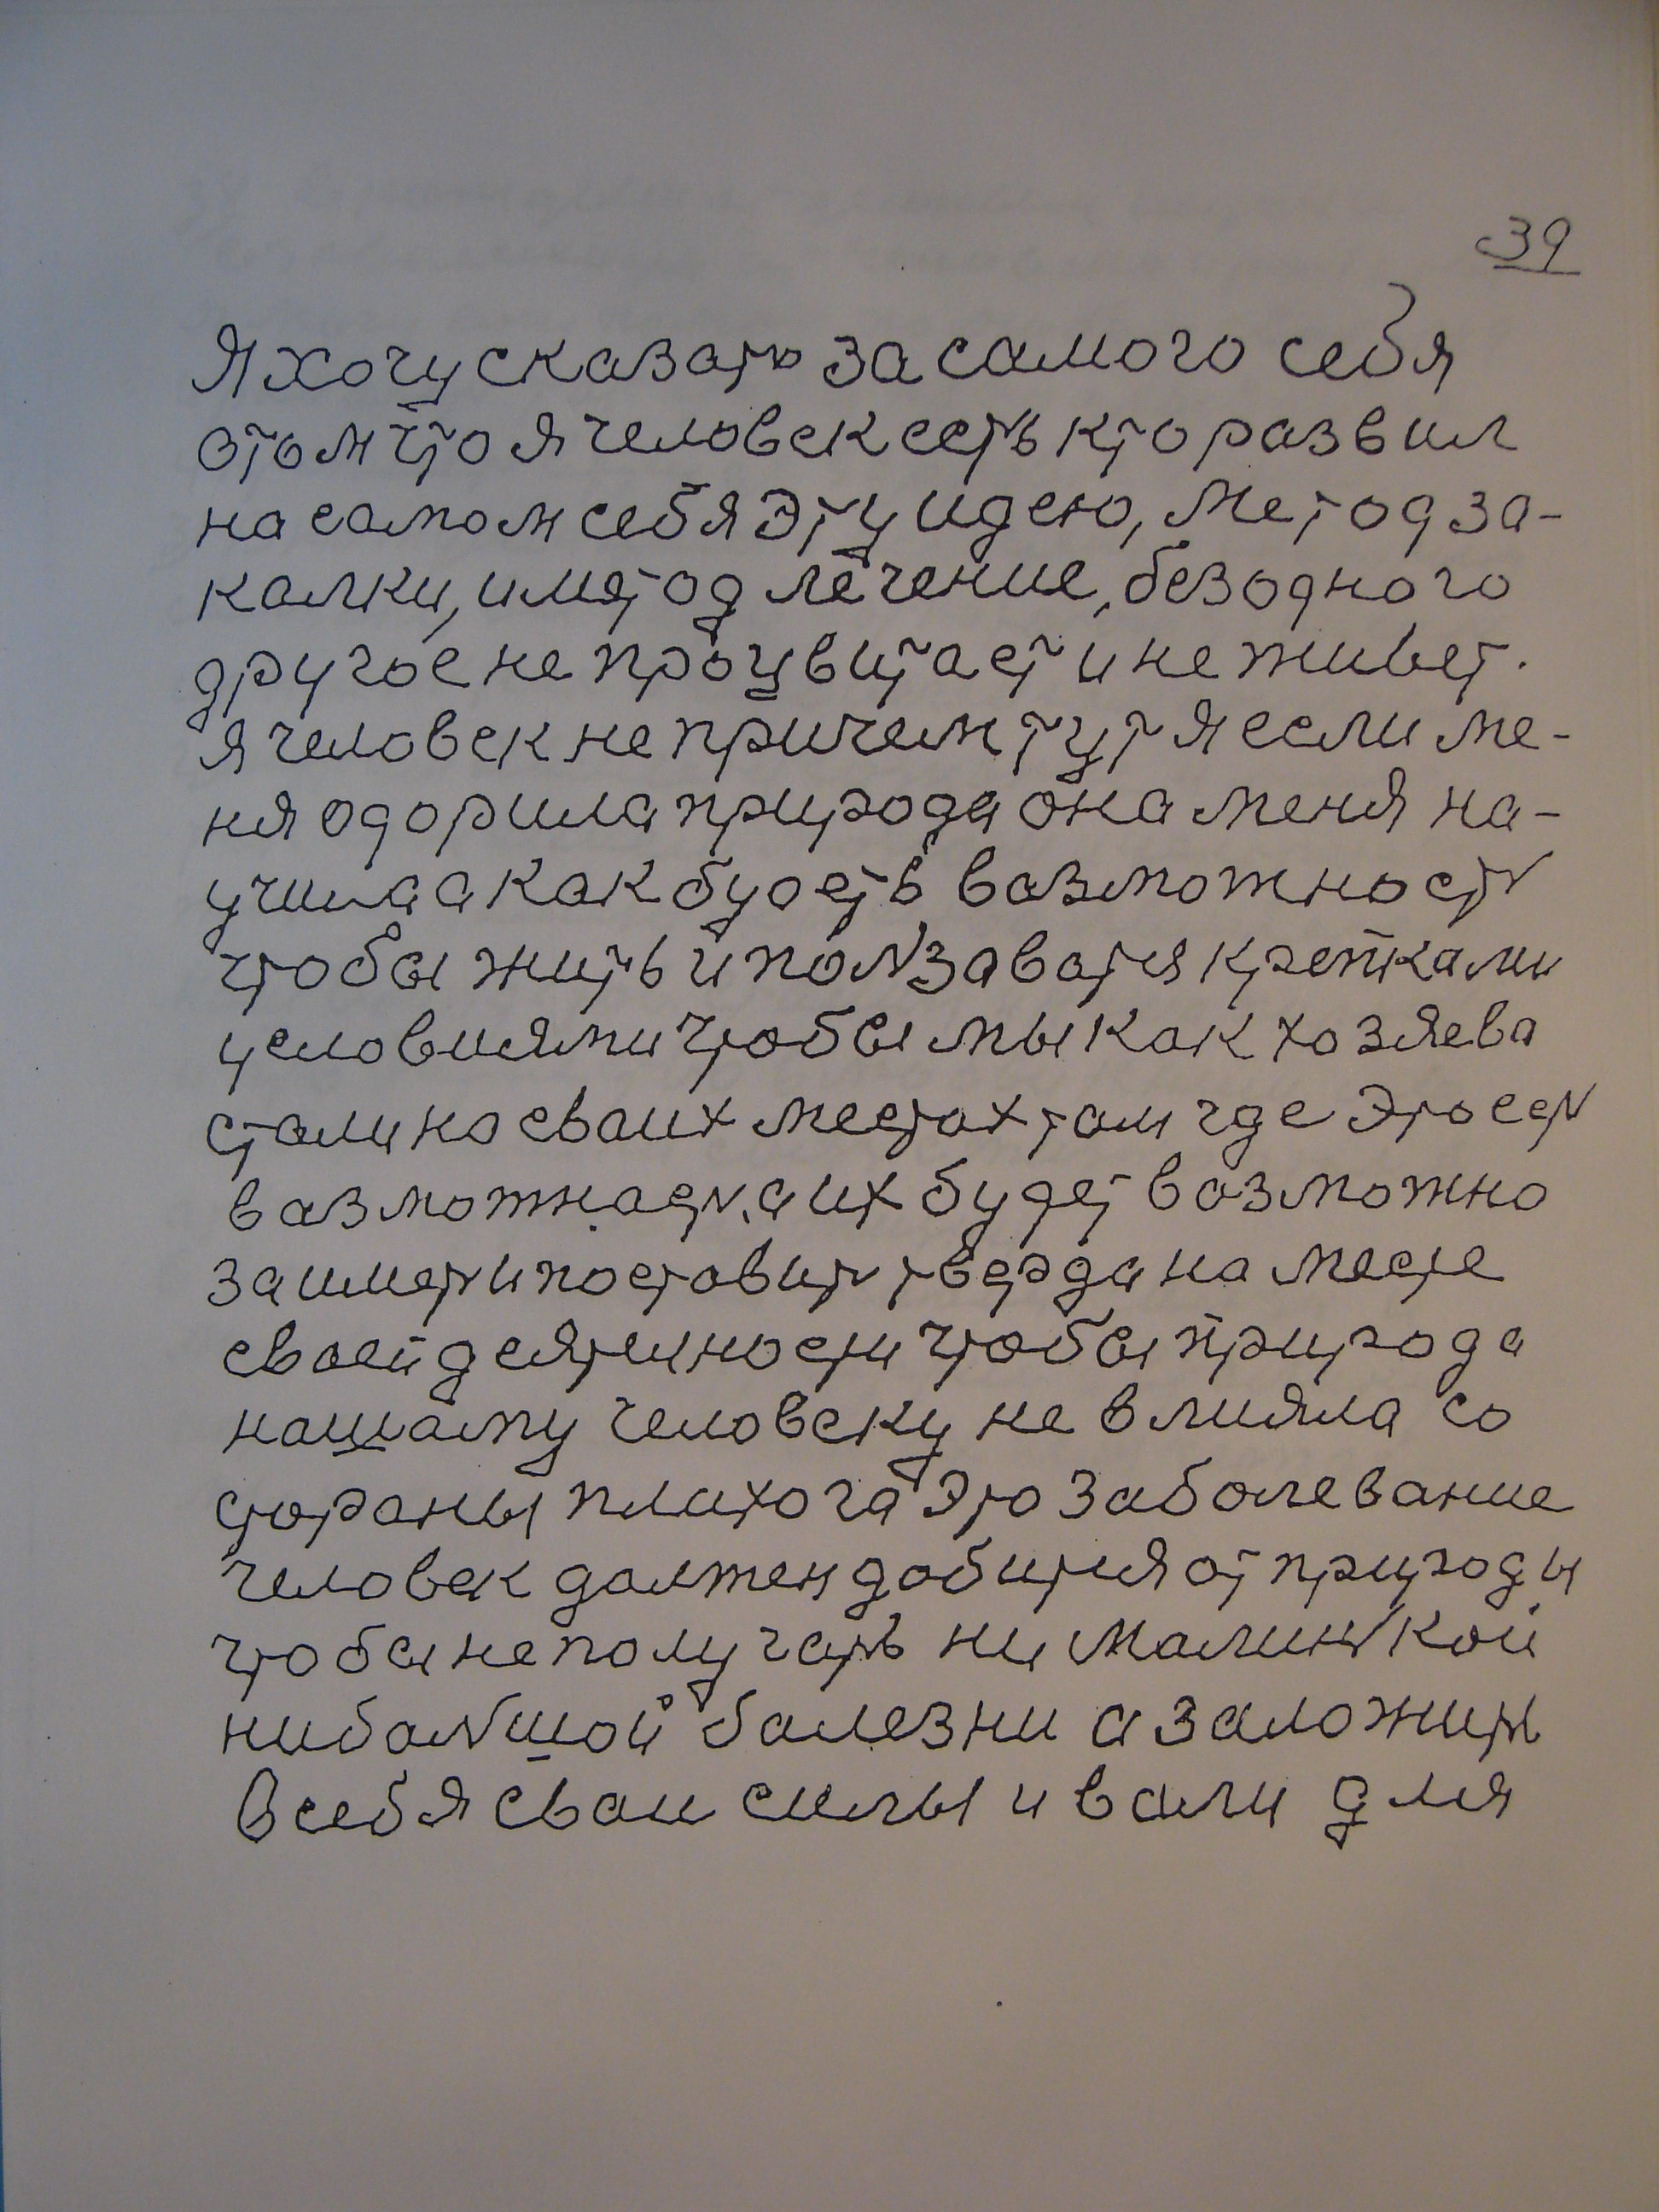 39
Я хочу сказать за самого себя
о том что я человек есть кто развил
на самом себя эту идею, метод за-
калки, и метод лечение, без одного
другое не процвитает и не живет.
я человек не причем тут я если ме-
ня одорила природа она меня на-
учила а как будеть возможность
чтобы жить и ползаватся крепками
условиями чтобы мы как хозяева
стали на сваих местах там где это есть
вазможнасть, а их будет возможно
заиметь и поставить тверда на месте
сваей деятелности чтобы природа
нашаму человеку не влияла со
стораны плихога это заболевание
человек должен добится от природы
чтобы не получать ни малинькой
ни балшой балезни а заложить
в себя сваи силы и вали для